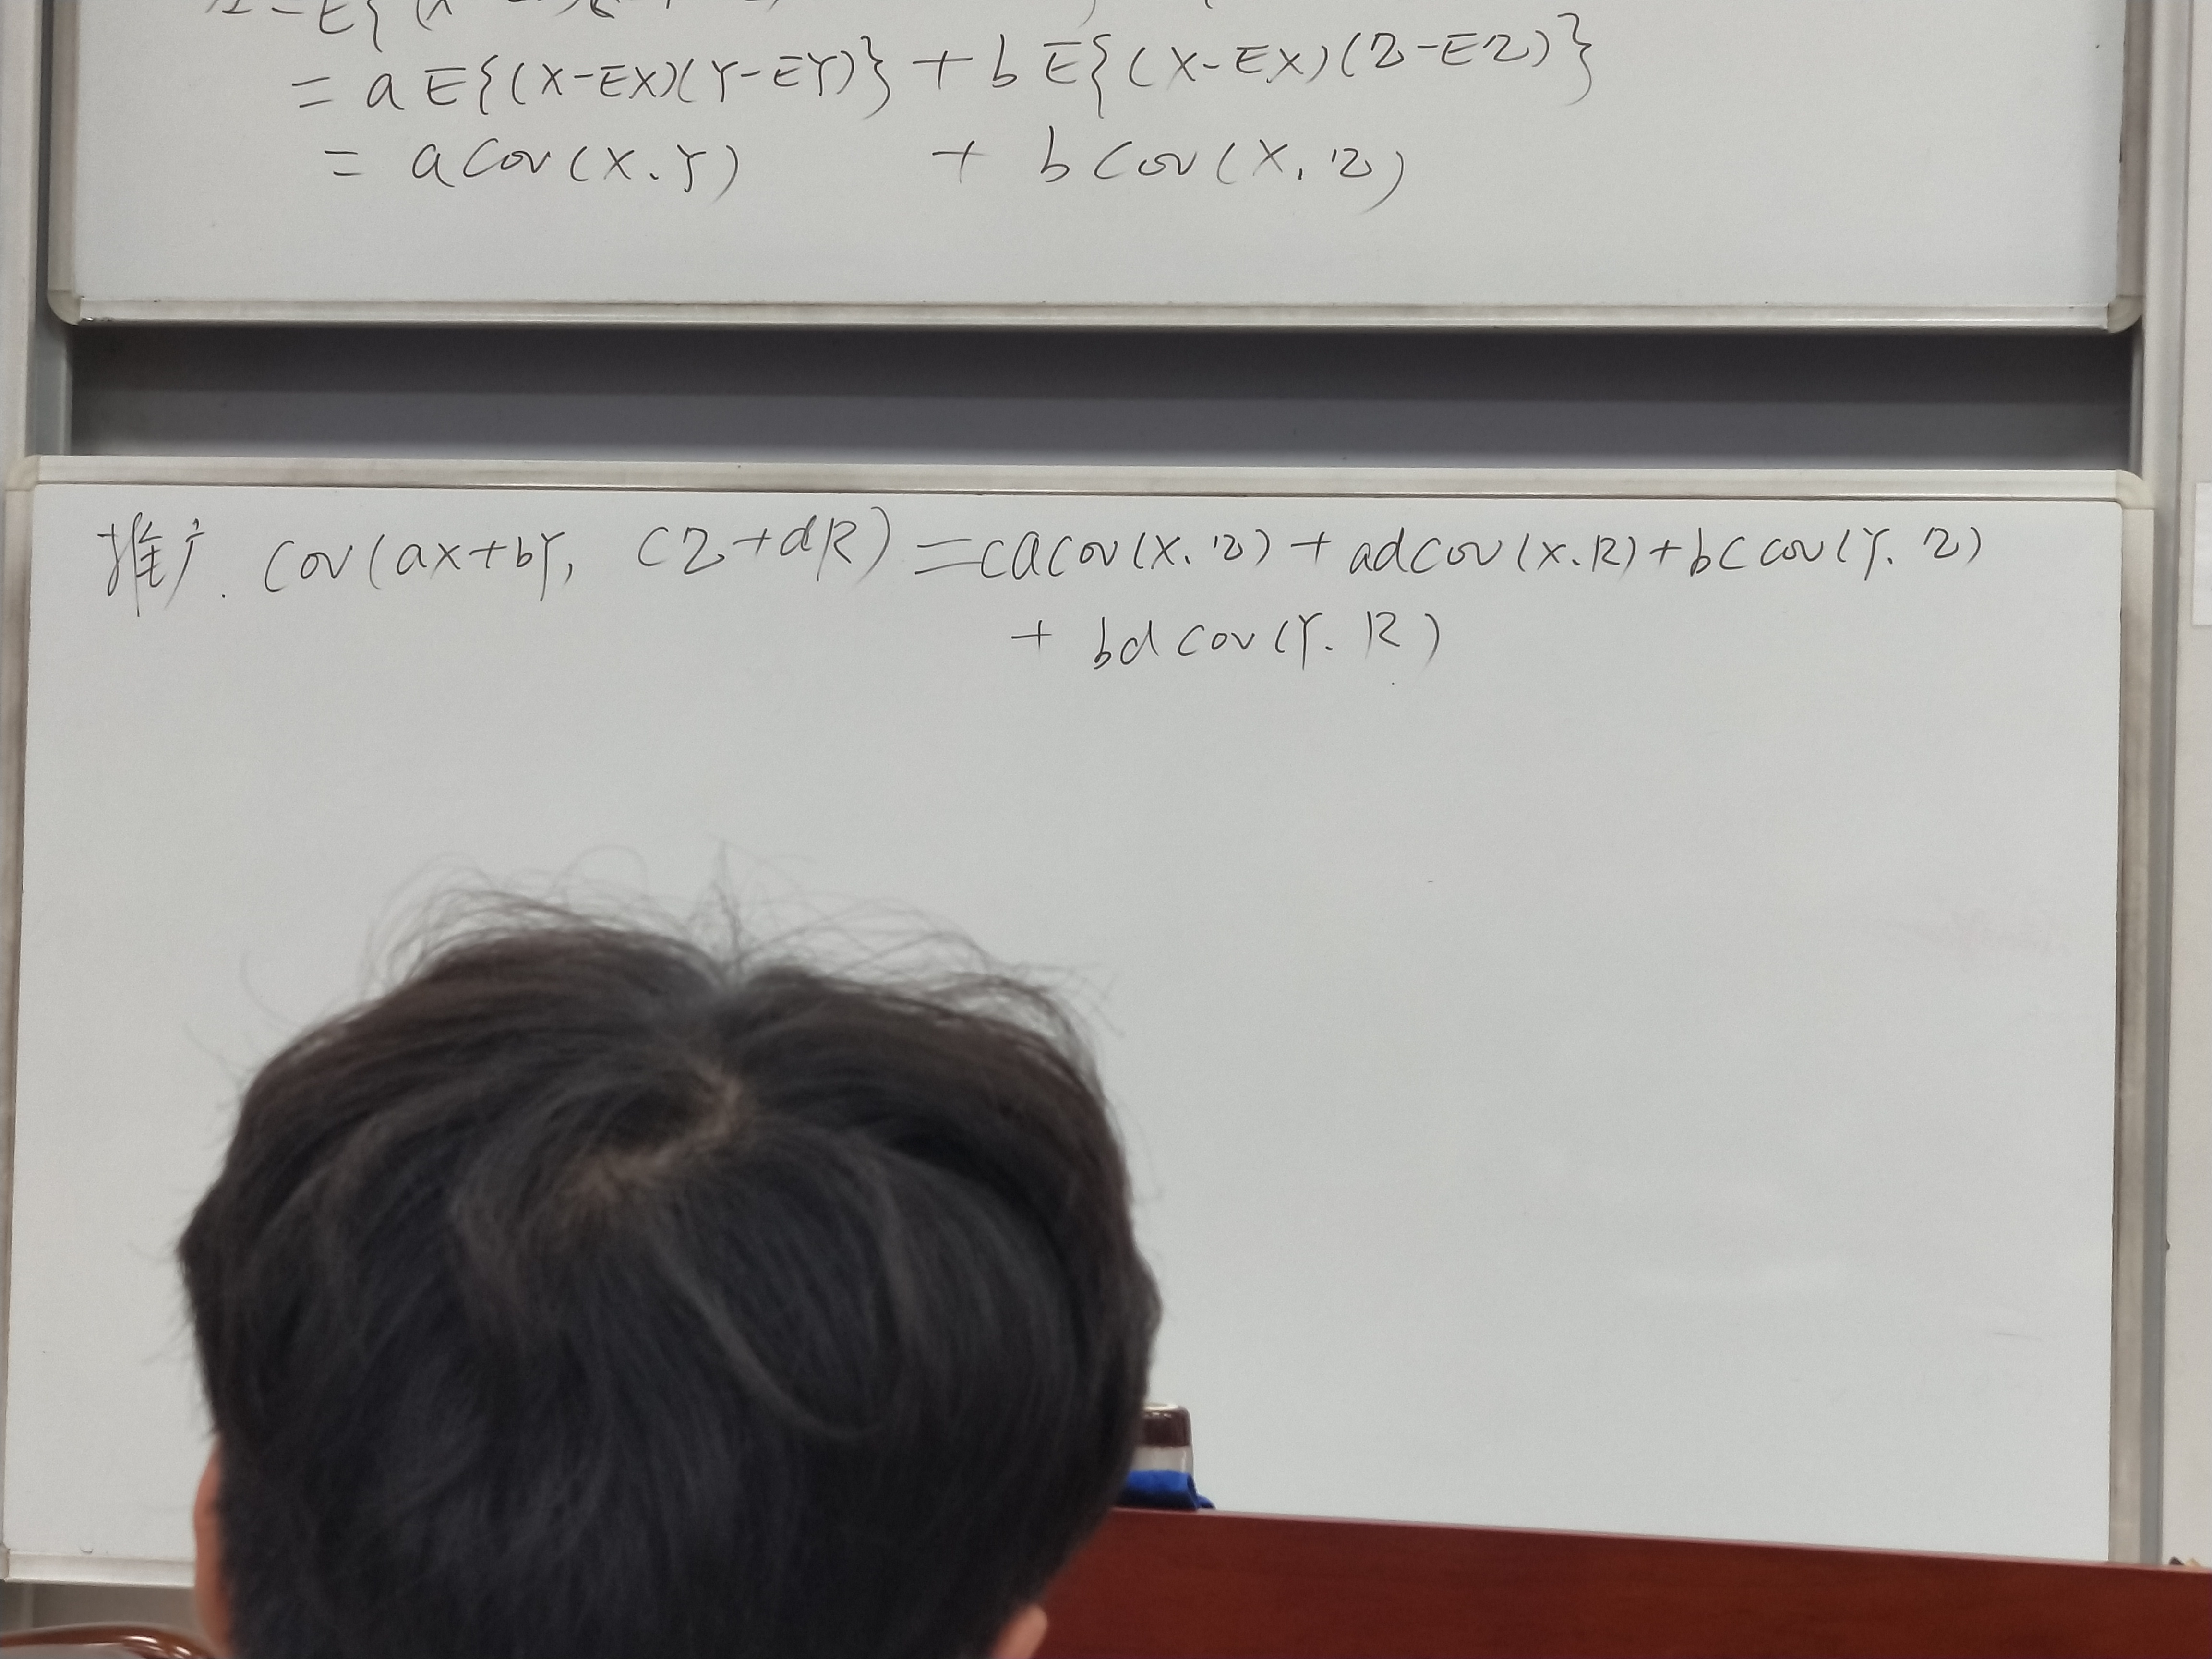 = a E{(X-EX)(Y-EY)} + b E{(X-EX)(Z-EZ)}
= a Cov(X.Y) + b Cov(X, Z)
推广. Cov(aX+bY, CZ+dR) = ca cov(X. Z) + ad cov(X.R) + bc cov(Y. Z)
+ bd cov(Y. R)